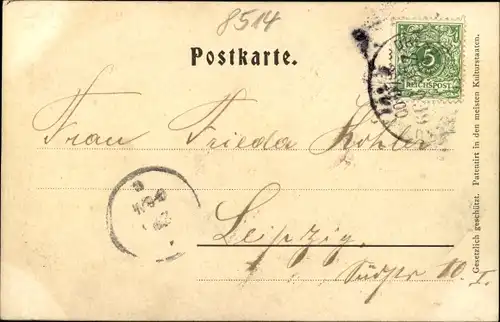 8514
Postkarte.
5
REICHSPOST
Frau Frieda Köhler
Leipzig.
Südstr 10. I.
Gesetzlich geschützt. Patentirt in den meisten Kulturstaaten.